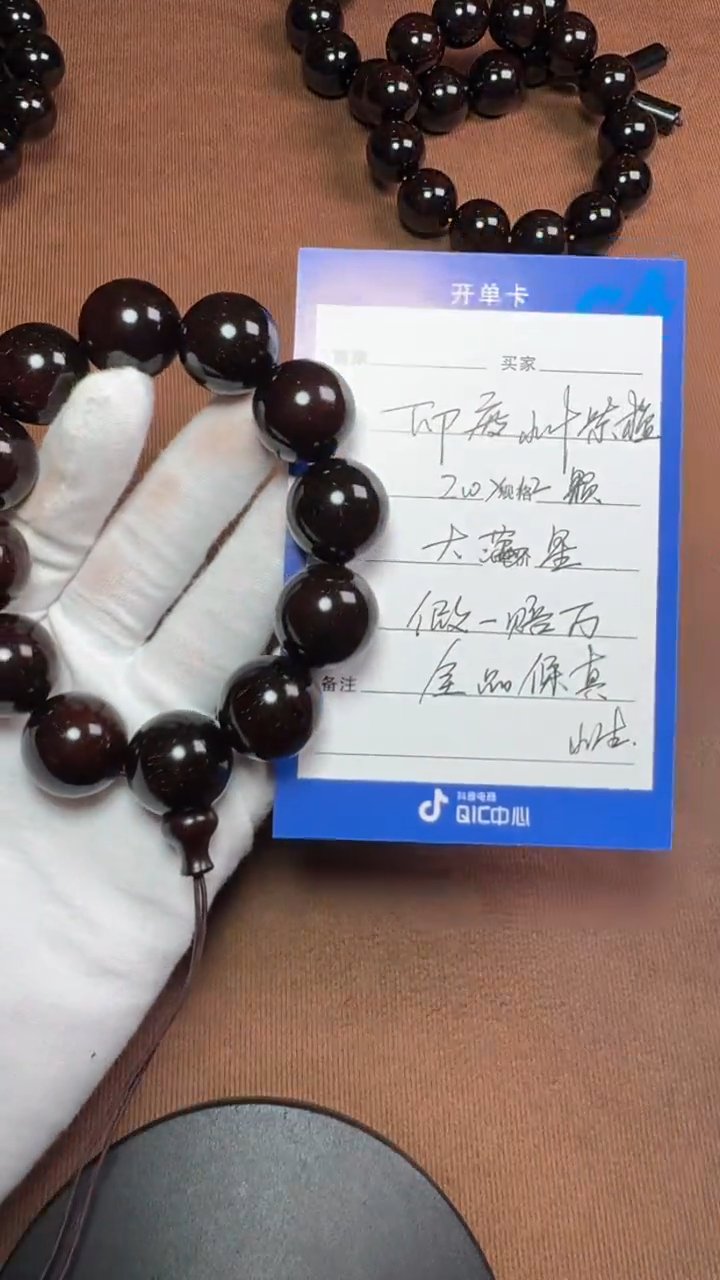 开单卡
买家
印度小叶紫檀
2.0×规格2 颗
大满星
假一赔万
全品保真
备注
抖音电商
QIC中心